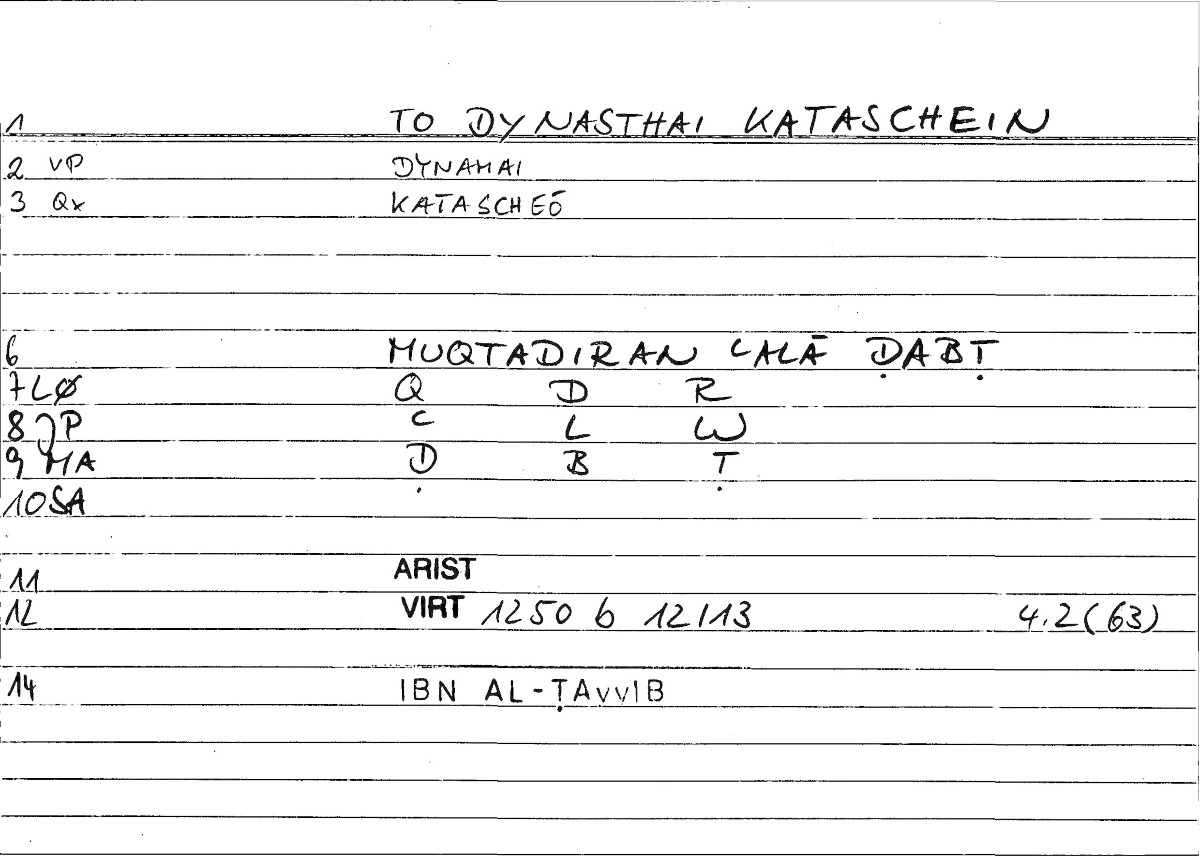 1 TO DYNASTHAI KATASCHEIN
2 VP DYNAMAI
3 Qx KATASCHEŌ
6 MUQTADIRAN ʿALĀ ḌABṬ
7 LØ Q D R
8 JP ʿ L W
9 MA Ḍ B Ṭ
10 SA
11 ARIST
12 VIRT 1250 b 12/13 4.2(63)
14 IBN AL-ṬAyyIB